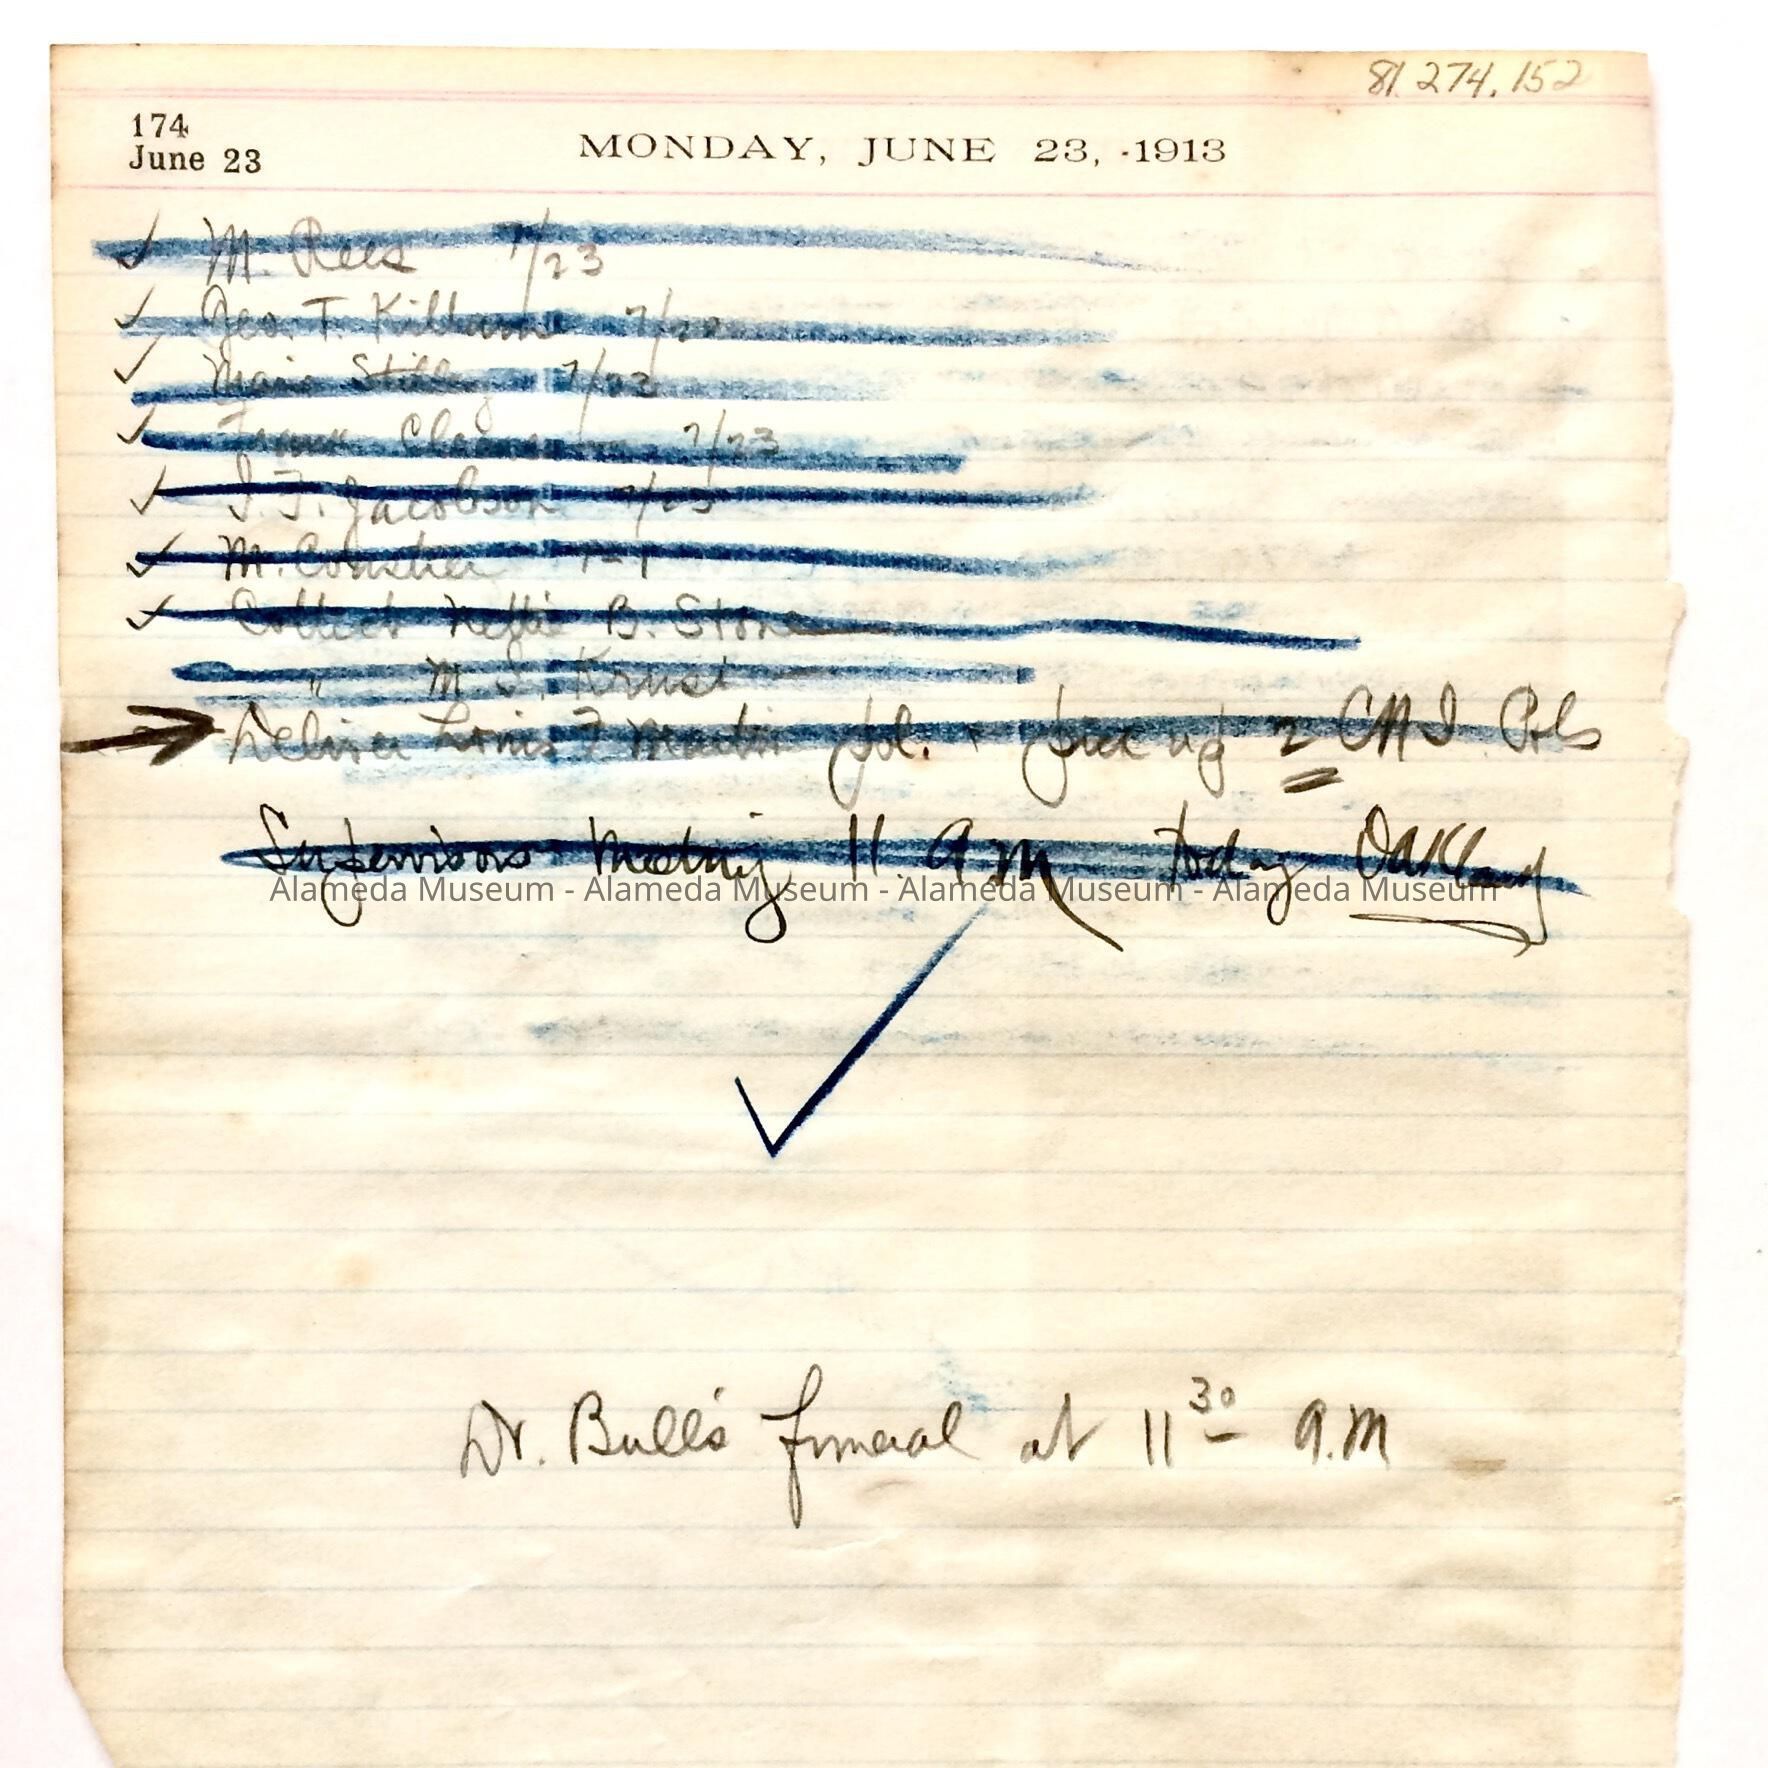 81.274.152
174
June 23
MONDAY, JUNE 23, 1913
✓ M. Rees 7/23
✓ Geo. T. Killam 7/20
✓ 7/23
✓ Frank 7/23
✓ J. Jacobson 7/23
✓ M. 7-1
✓ Collect Nellie B. Stone
" M. Krusi
Deliver Louis F Martin pol. + pick up 2 CNI Pols
Supervisors Meeting 11 A M Today Oakland
Alameda Museum - Alameda Museum - Alameda Museum - Alameda Museum
Dr. Bull's funeral at 11 30 A.M